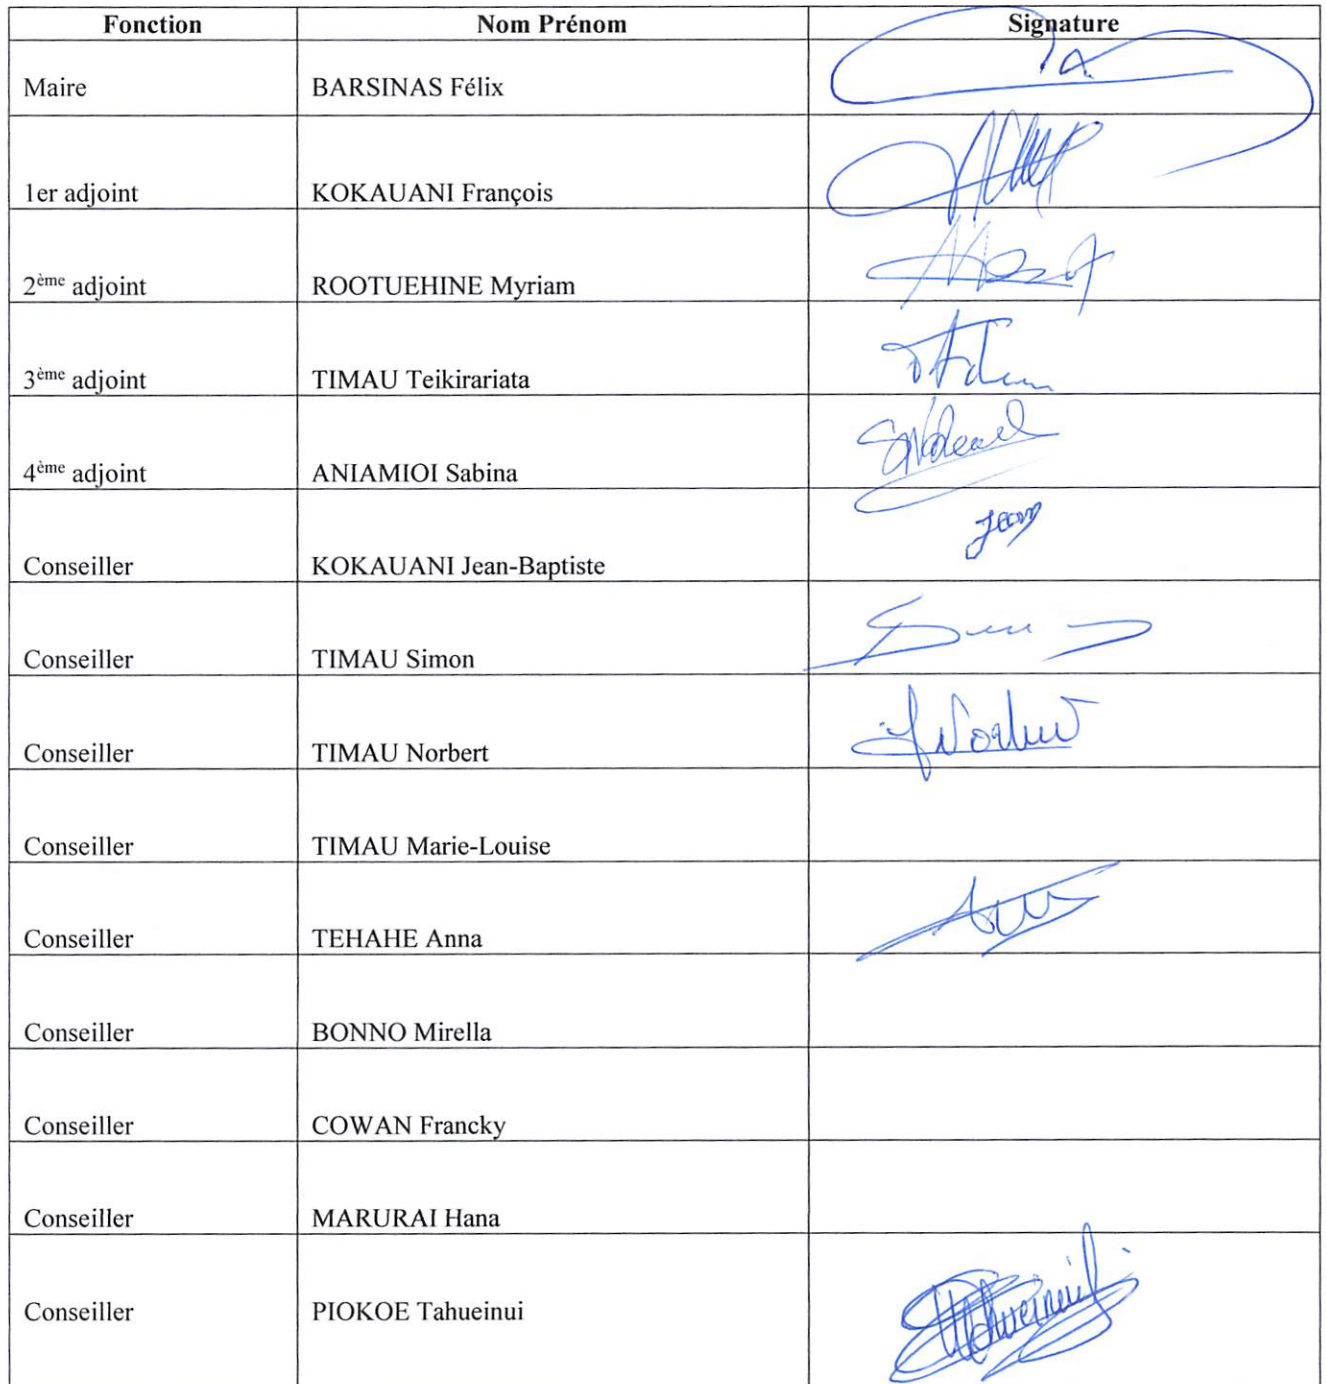 Fonction Nom Prénom Signature
Maire BARSINAS Félix
1er adjoint KOKAUANI François
2ème adjoint ROOTUEHINE Myriam
3ème adjoint TIMAU Teikirariata
4ème adjoint ANIAMIOI Sabina
Conseiller KOKAUANI Jean-Baptiste Jean
Conseiller TIMAU Simon
Conseiller TIMAU Norbert Norbert
Conseiller TIMAU Marie-Louise
Conseiller TEHAHE Anna
Conseiller BONNO Mirella
Conseiller COWAN Francky
Conseiller MARURAI Hana
Conseiller PIOKOE Tahueinui